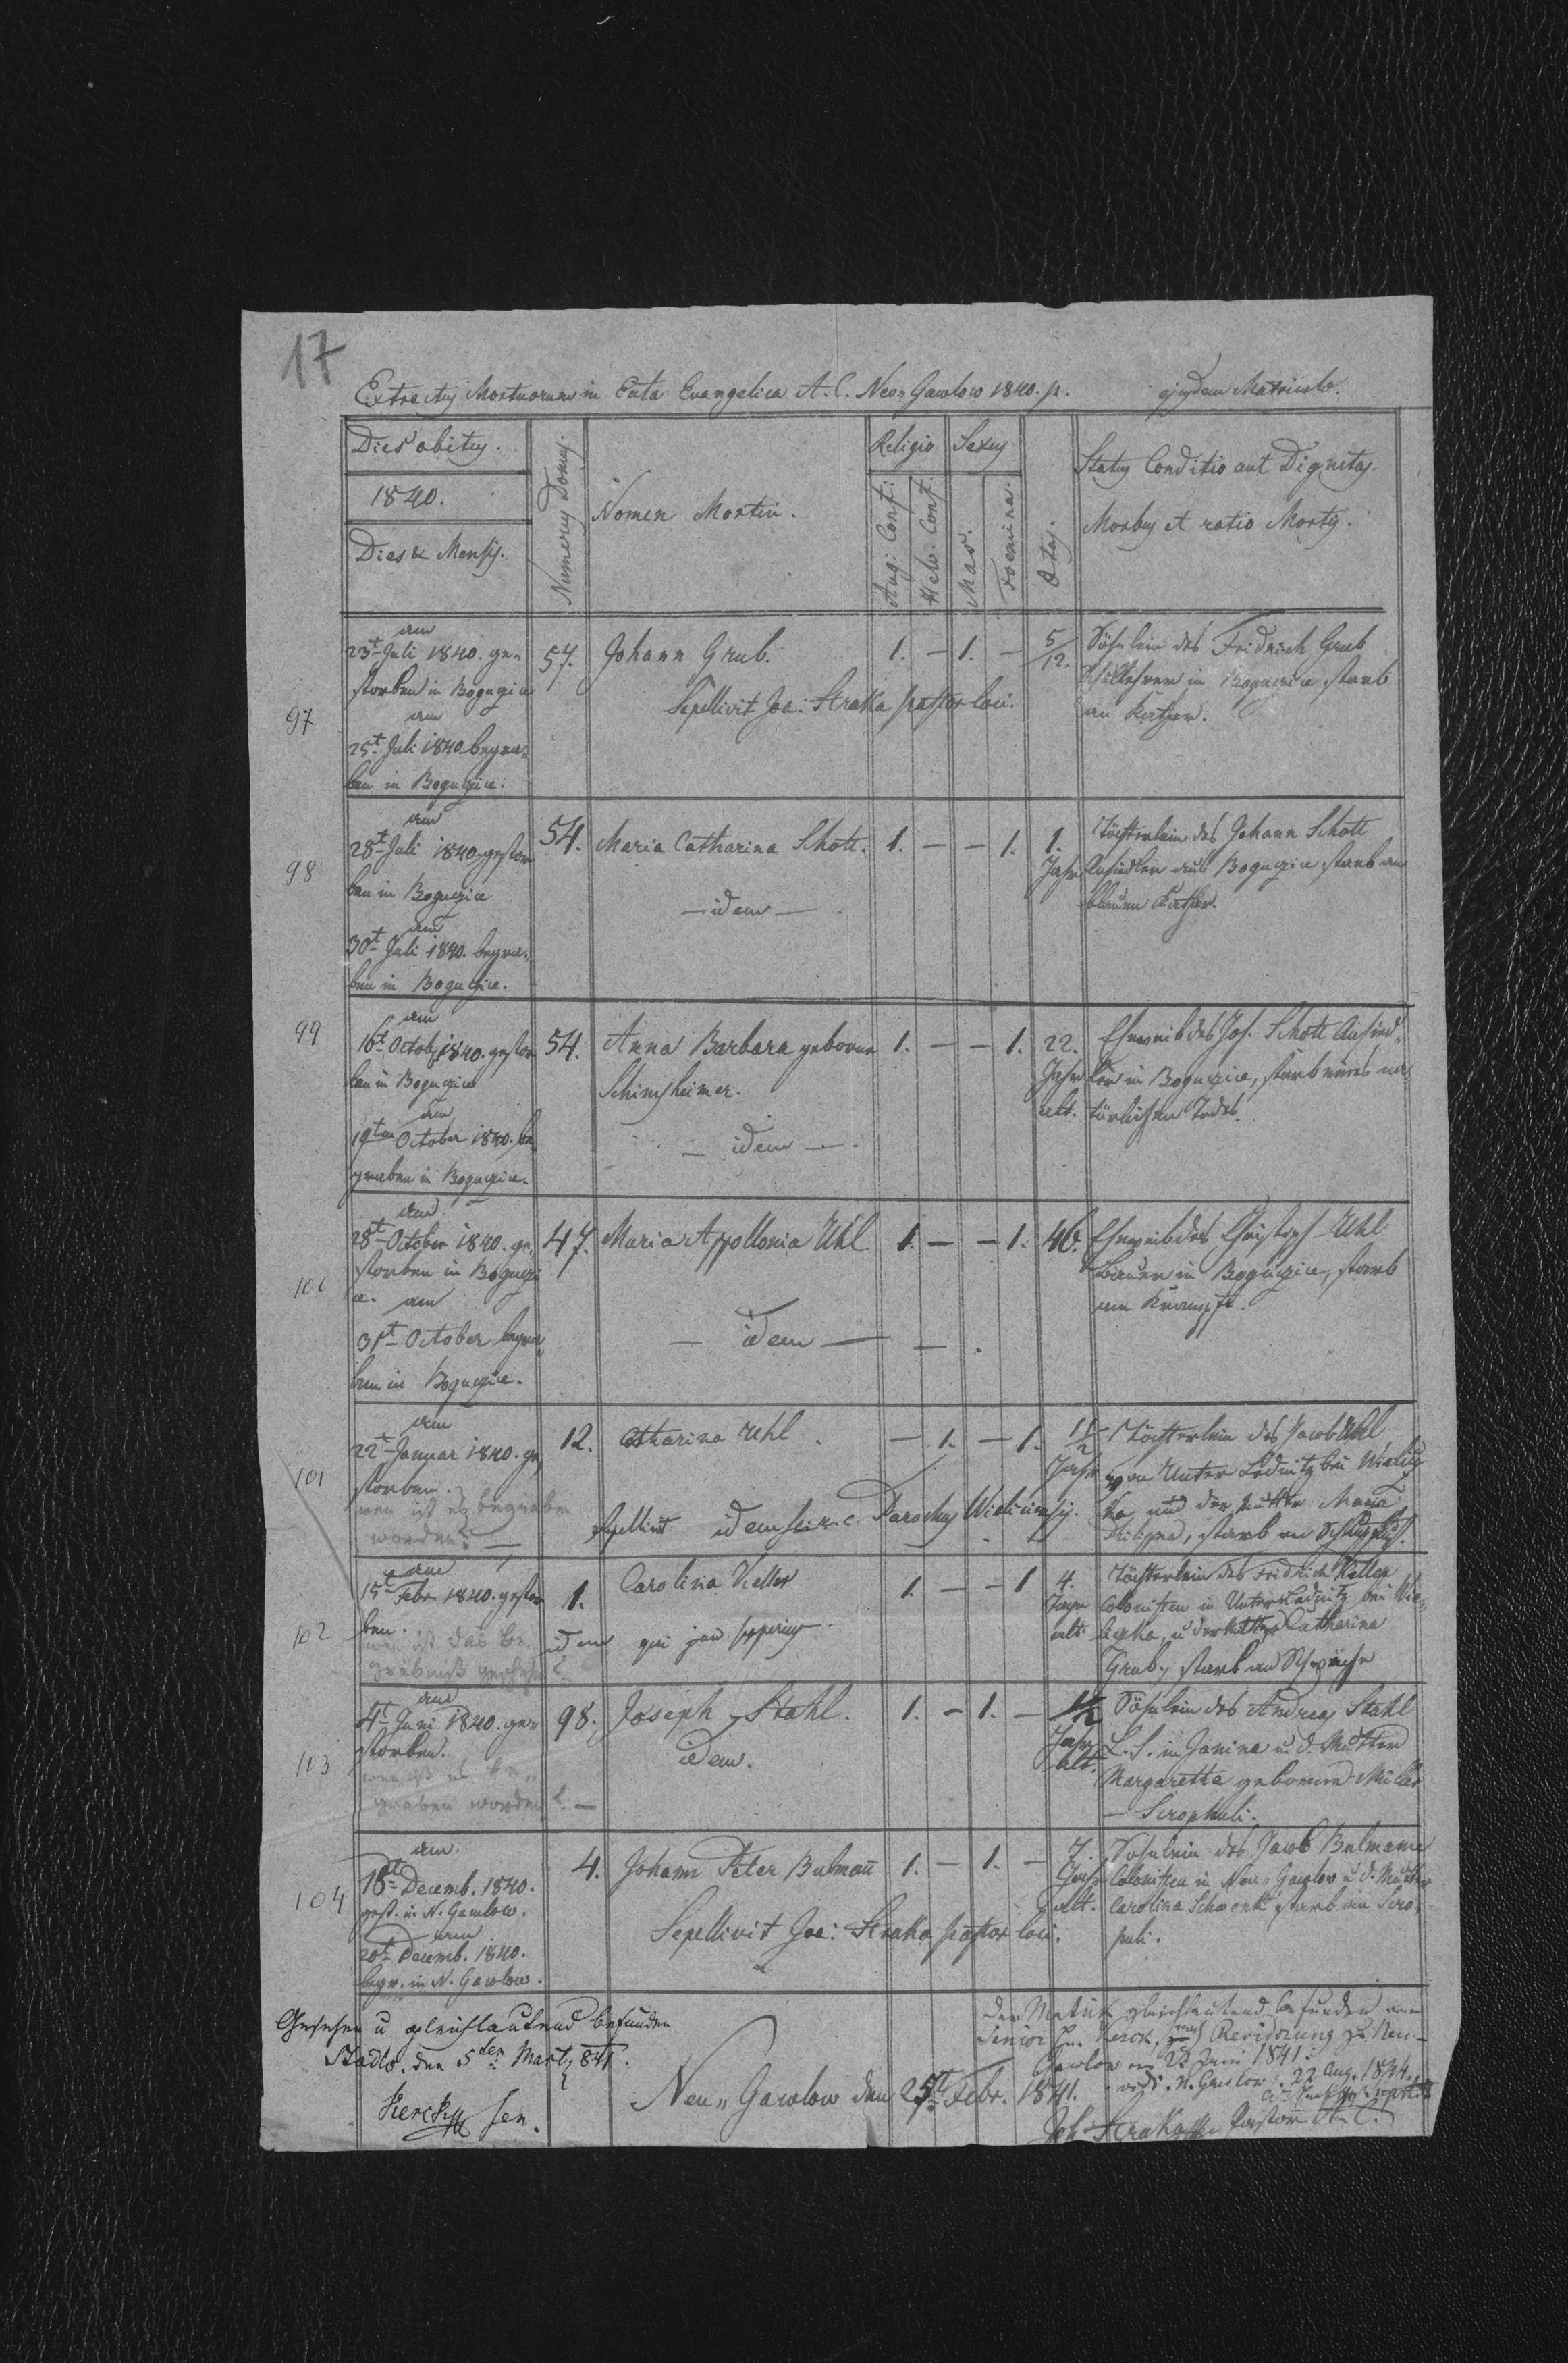 17
Extractus Mortuorum in Ecclia Evangelica A. C. Neo=Gawlow 1840. p. ejusdem Matricula.
Dies obitus.
1840.
Dies & Mensis.
Numerus Domus.
Nomen Mortui.
Religio
Aug: Conf:
Helv: Conf:
Sexus
Mas.
Foemina.
Aetas.
Status Conditio aut Dignitas.
Morbus et ratio Mortis.
97
am
23t Juli 1840. ge=
storben in Bogucice
am
25t Juli 1840 begra=
ben in Bogucice.
57.
Johann Grub.
Sepellivit Joa: Straka pastor loci.
1. — 1. —
5/12.
Söhnlein des Fridrich Grub
Schullehrer in Bogucice starb
an Kathar.
98
am
28t Juli 1840. gestor
ben in Bogucice
am
30t Juli 1840. begra=
ben in Bogucice.
54.
Maria Catharina Schott.
— idem —
1. — — 1.
1.
Jahr
Töchterlein des Johann Schott
Ansiedler aus Bogucice starb am
blauen Kathar.
99
am
16t Octob. 1840. gestor
ben in Bogucice
am
19ten October 1840. be
graben in Bogucice.
54.
Anna Barbara geborne
Schimsheimer.
— idem —
1. — — 1.
22.
Jahr
alt.
Eheweib des Joh. Schott Ansied=
ler in Bogucice, starb eines na=
türlichen Todes.
100
am
28t October 1840. ge=
storben in Boguci
ce. am
31t October begra=
ben in Bogucice.
47.
Maria Appollonia Uhl.
— idem — — .
1. — — 1.
46.
Eheweib des Christoph Uhl
Bauer in Bogucice, starb
am Krampfe.
101
am
22t Januar 1840. ge
storben.
wen ist es begraben
worden? —
12.
Catharina Uhl.
Sepellivit idem Parochus Wieliciensis.
— 1. — 1.
1 1/2
Jahr
Töchterlein des Jacob Uhl
von Unter Lednitz bei Wielicz
ka und der Mutter Maria
starb am Schlagfluß.
102
am
15t Febr. 1840. gestor
ben.
wen ist das Be=
gräbniß geschehen?
1.
Carolina Keller
idem qui jam superius.
1. — — 1
4.
Jahr
alt
Töchterlein des Fridrich Keller
Colonisten in Unter Lednitz bei Wie=
liczka, u der Mutter Catharina
Grub, starb an Schwäche
103
am
4t Juni 1840. ge=
storben.
wen ist es be=
graben worden? —
98.
Joseph Stahl.
idem.
1. — 1. —
1/2
Jahr
alt.
Söhnlein des Andreas Stahl
L. S. in Janina u. d. Mutter
Margaretha geborene Müller
— Scrophuli.
104
am
18te Decemb. 1840.
gest. in N. Gawlow.
am
20t Decemb. 1840.
begr. in N. Gawlow.
4.
Johann Peter Bulmann
Sepellivit Joa: Straka pastor loci.
1. — 1. —
7.
Jahr
alt.
Sohnlein des Jacob Bulmann
Colonisten in Neu=Gawlow u d. Mutter
Carolina Schwenk starb an Scro=
puli.
Gesehen u gleichlautend befunden
Stadlo. den 5ten Mart. 1841.
sen.
Neu=Gawlow den 25t Febr. 1841.
Der Matrik gleichlautend befunden vom
Senior nach Revidirung zu Neu=
Gawlow 1841.
N. Gawlow 22 Aug. 1844.
Joh Straka Pastor A. C.